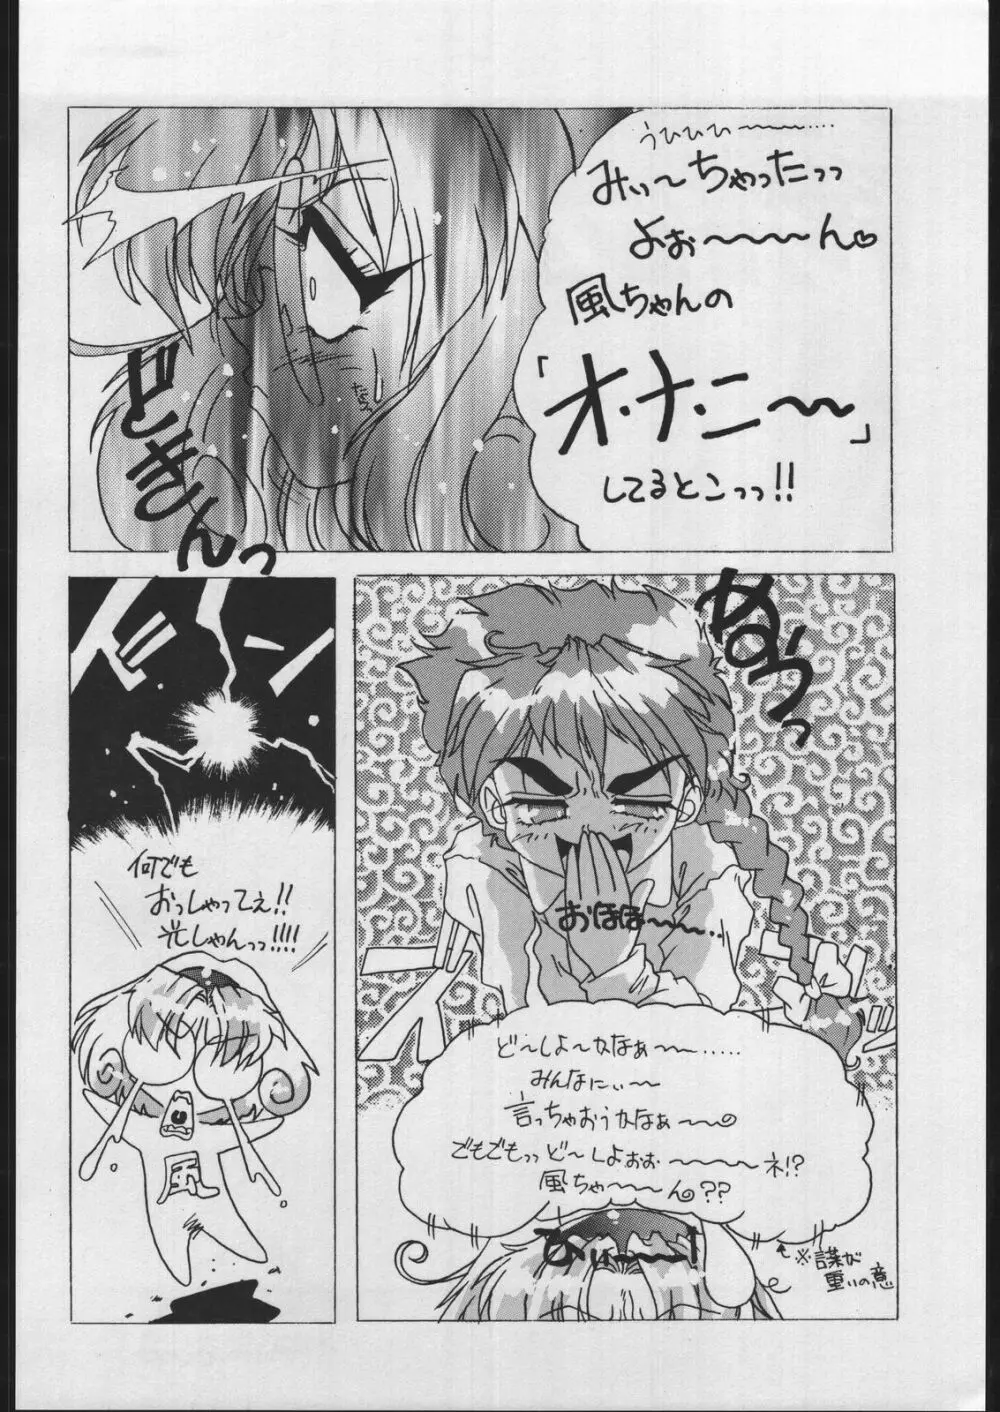 うひひひ〜〜〜…‥
みぃ〜ちゃったっっ
よぉ〜〜〜〜ん♡
風ちゃんの
「オ・ナ・ニ〜〜」
してるとこっっ!!
どきんっ
ぬぅうっ
おほほ〜〜〜‥
ど〜しよ〜かなぁ〜〜‥‥‥
みんなにぃ〜〜
言っちゃおうかなぁ〜〜
でもでもっっど〜しよぉぉ〜〜〜〜ネ!?
風ちゃ〜〜〜ん??
ひぃ〜〜〜!
※謀が
重いの意
ガーン
何でも
おっしゃってぇ!!
光しゃんっっ!!!!
風